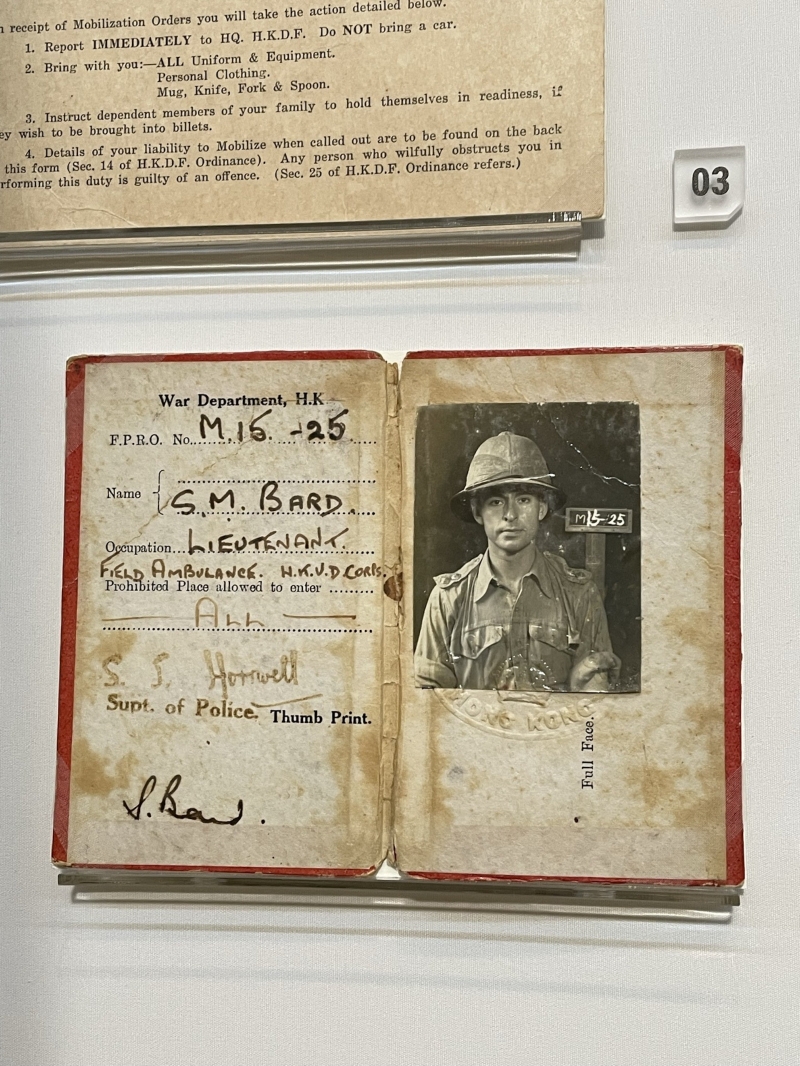 receipt of Mobilization Orders you will take the action detailed below.
1. Report IMMEDIATELY to HQ. H.K.D.F. Do NOT bring a car.
2. Bring with you:—ALL Uniform & Equipment.
Personal Clothing.
Mug, Knife, Fork & Spoon.
3. Instruct dependent members of your family to hold themselves in readiness, if
ey wish to be brought into billets.
4. Details of your liability to Mobilize when called out are to be found on the back
this form (Sec. 14 of H.K.D.F. Ordinance). Any person who wilfully obstructs you in
rforming this duty is guilty of an offence. (Sec. 25 of H.K.D.F. Ordinance refers.)
03
War Department, H.K
F.P.R.O. No. M.15.-25
Name
S.M. BARD.
Occupation LIEUTENANT.
FIELD AMBULANCE. H.K.V.D CORPS.
Prohibited Place allowed to enter
ALL
S. J.
Supt. of Police.
Thumb Print.
S. Bard.
M15-25
HONG KONG
Full Face.